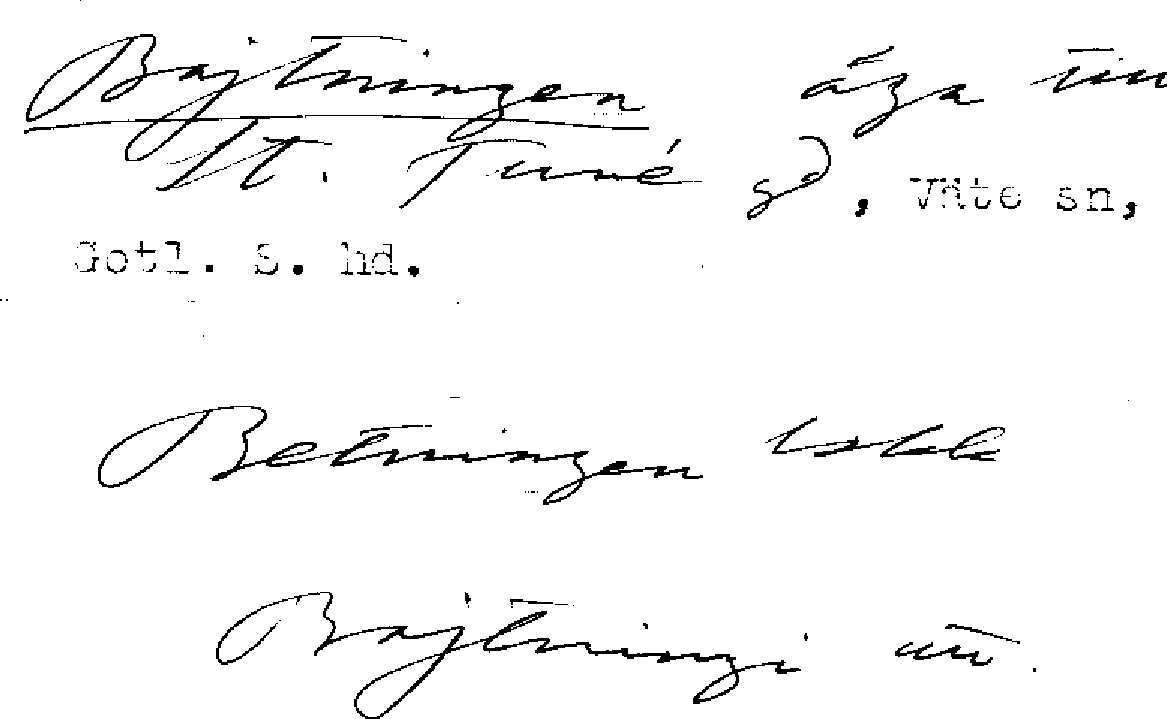 Bajtningen åza till
St. Tune gd, Väte sn,
Gotl. S. hd.
Betningen
Bajtningi